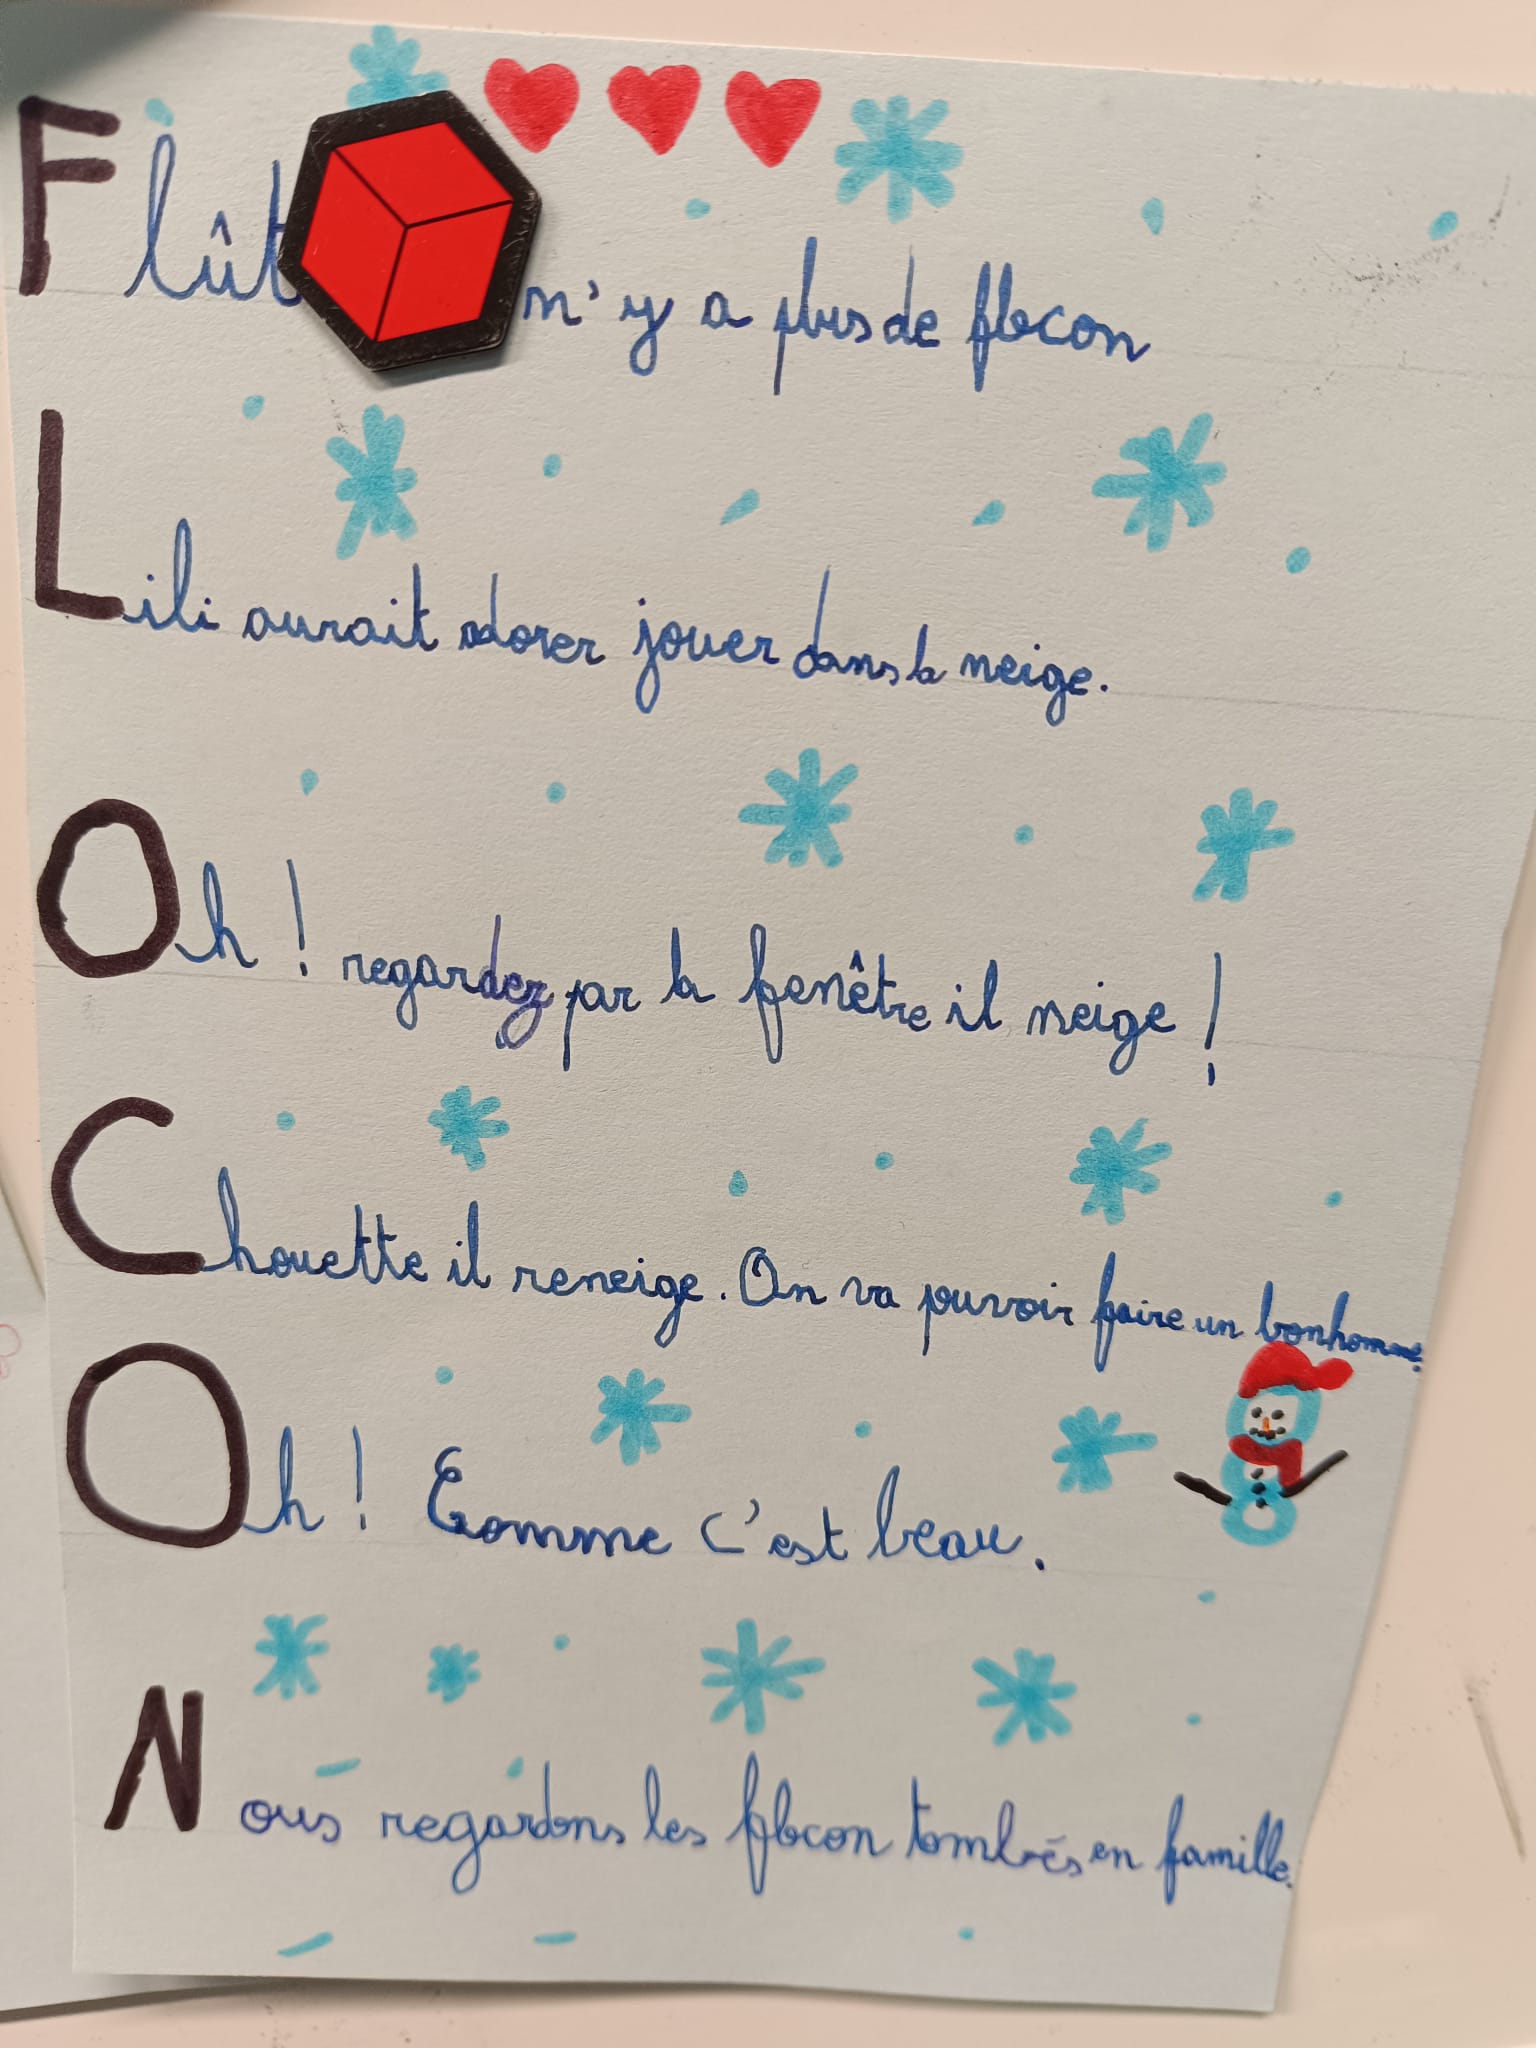 Flût n'y a plus de flocon
Lili aurait adorer jouer dans la neige.
Oh ! regardez par la fenêtre il neige !
Chouette il reneige. On va pouvoir faire un bonhomme.
Oh ! Comme c'est beau.
Nous regardons les flocon tombés en famille.